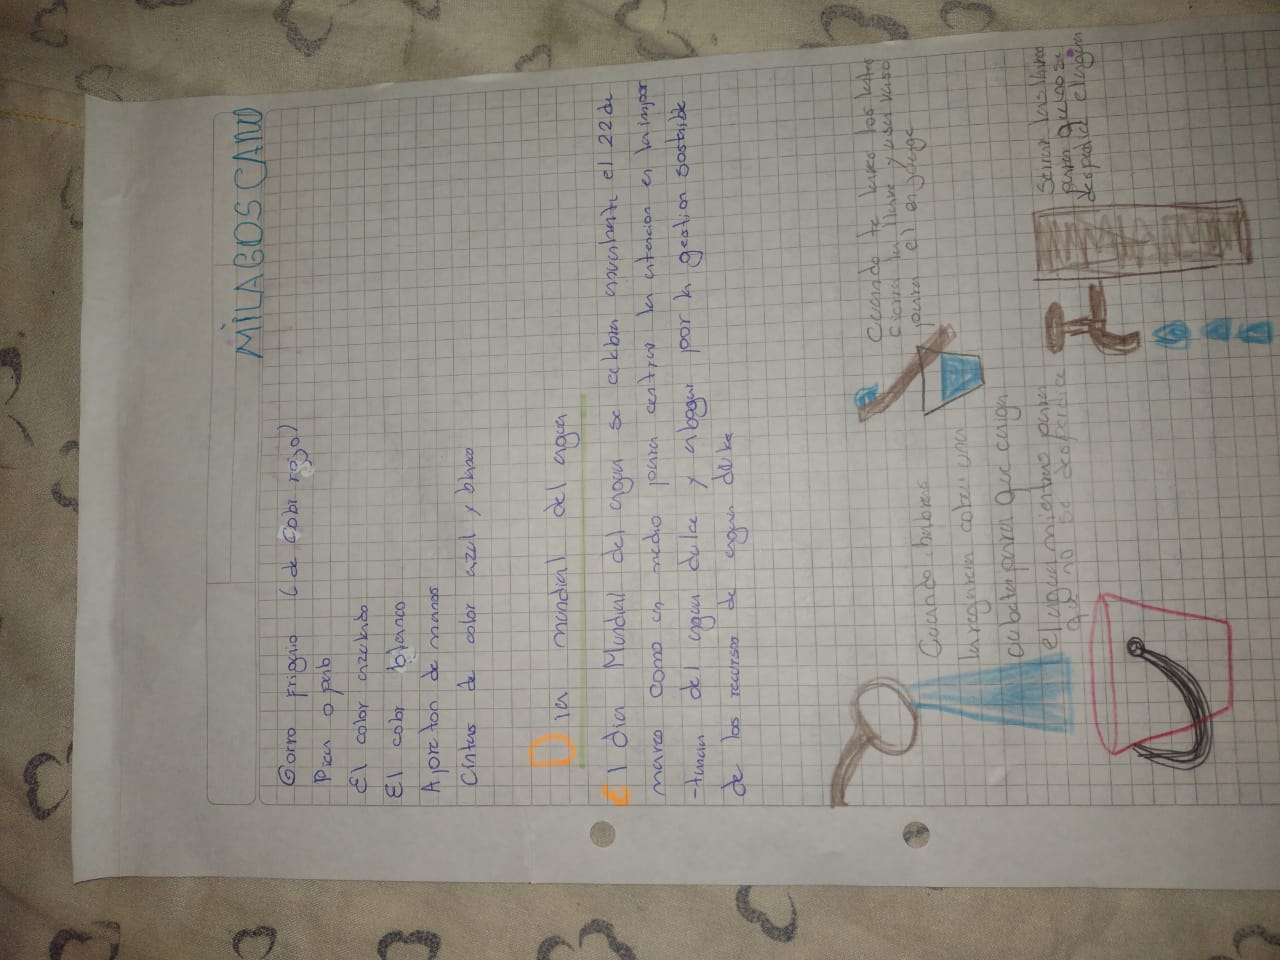 MILAGOS CANO
Gorro Frigio (de color rojo)
Pica o palo
El color azulado
El color blanco
Apreton de manos
Cintas de color azul y blanco
Dia mundial del agua
El dia Mundial del agua se celebra anualmente el 22 de
marzo como un medio para centrar la atencion en la impor
-tancia del agua dulce y abogar por la gestion sostenible
de los recursos de agua dulce
Cuando te laves los
cierra la llave y usa vaso
para el enjuage
Cuando habres
la regadera coloca una
cubeta para que caiga
el agua mientras para
que no se desperdicie
Serrar las llaves
para que no se
desperdicie el agua